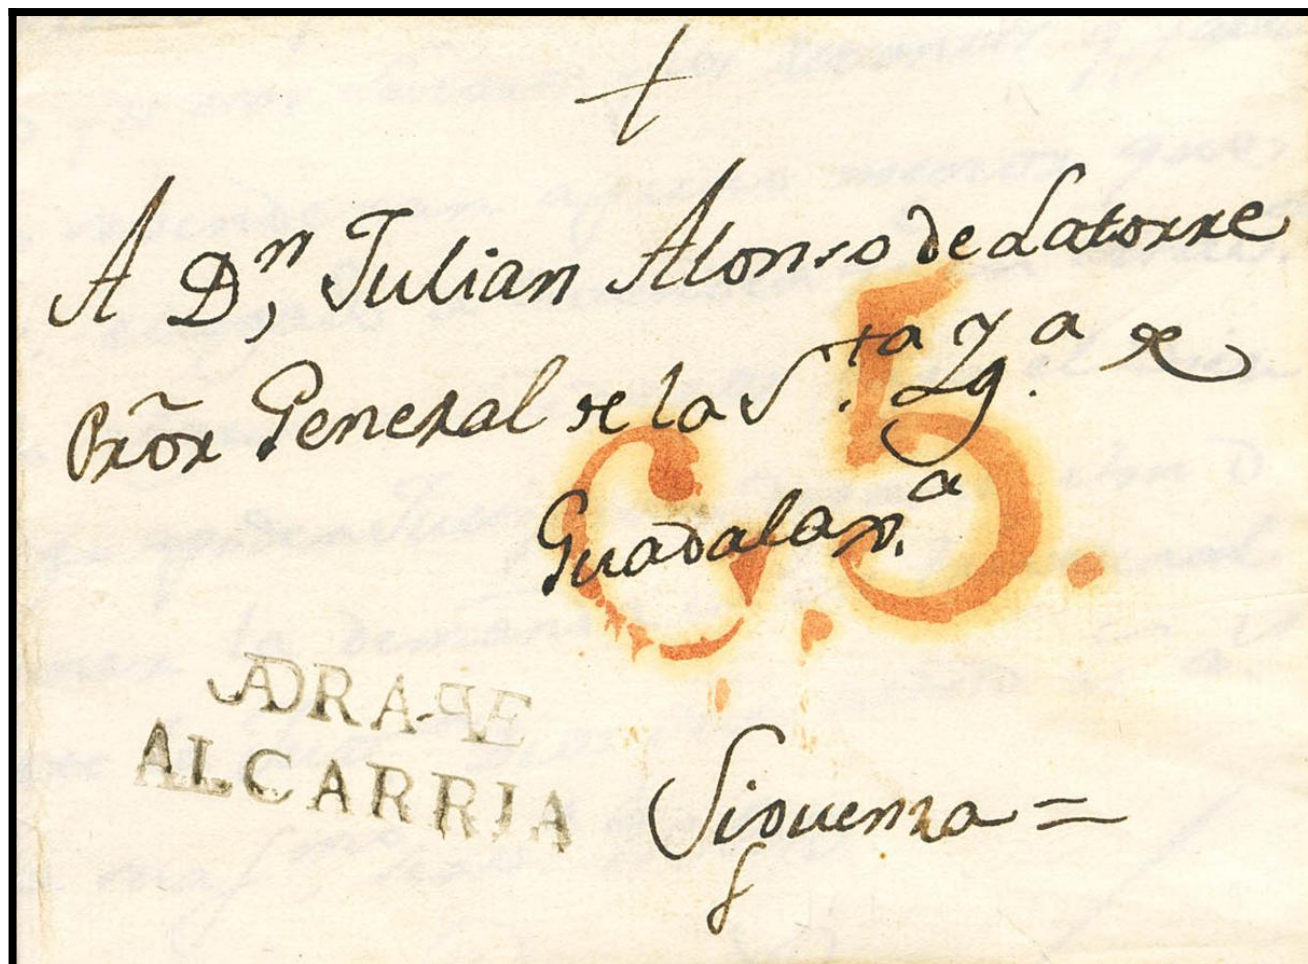 A Dn, Julian Alonso de Latorre
Pror̃ General de la Sta. Yga. de
Guadalaxa.
5.
JADRAQE
ALCARRIA
Siguenza =